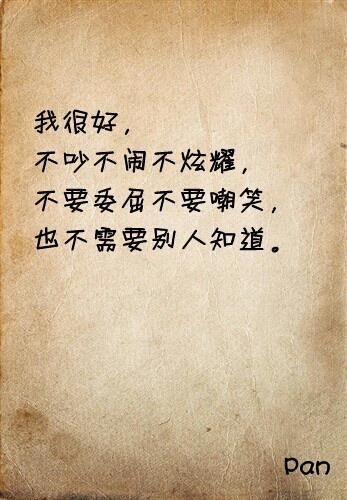 我很好，
不吵不闹不炫耀，
不要委屈不要嘲笑，
也不需要别人知道。
Pan